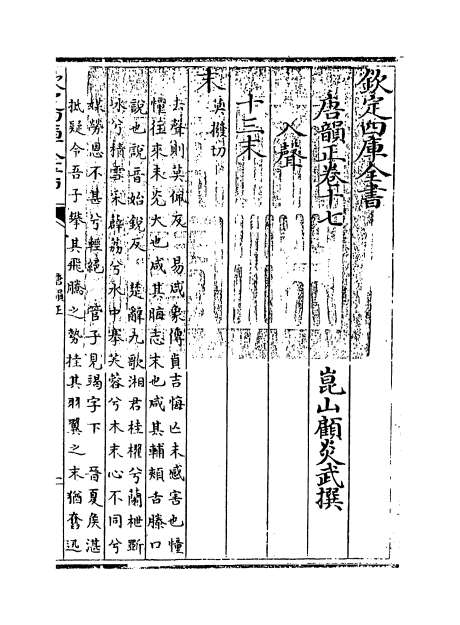 欽定四庫全書
唐韻正卷十七
崑山顧炎武撰
入聲
十三末
末
莫撥切
去聲則莫佩反　易咸象傳貞吉悔亡未感害也憧
憧往來未光大也咸其脢志末也咸其輔頰舌滕口
說也說音始銳反　楚辭九歌湘君桂櫂兮蘭枻斲
冰兮積雪采薜荔兮水中搴芙蓉兮木末心不同兮
媒勞恩不甚兮輕絕　管子見竭字下　晉夏侯湛
抵疑今吾子攀其飛騰之勢挂其羽翼之末猶奮迅
唐韻正